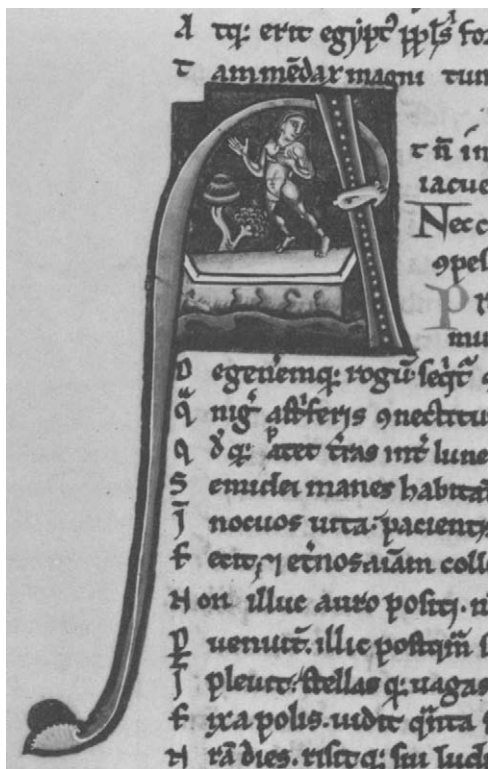 A tq: erit egipt' ppl's for
T am mēdax magni tum
t n̄ in
iacue
Nec c
ꝯpes
Pr
mu
D egen̄emq: rogū seqt̄'
Q̄ nig' ast'feris ꝯnectitu
Q d' q: patet t'ras int' lune
S emidei manes habitā
I nocuos uita. pacient
F ecit, ⁊ et'nos aīam coll
N on illuc auro positi. n
P uenūt. illic postq̄m s
I pleuit. stellas q: uagas
F ixa polis. uidit q̄nta
N rā dies. risitq: sui lud